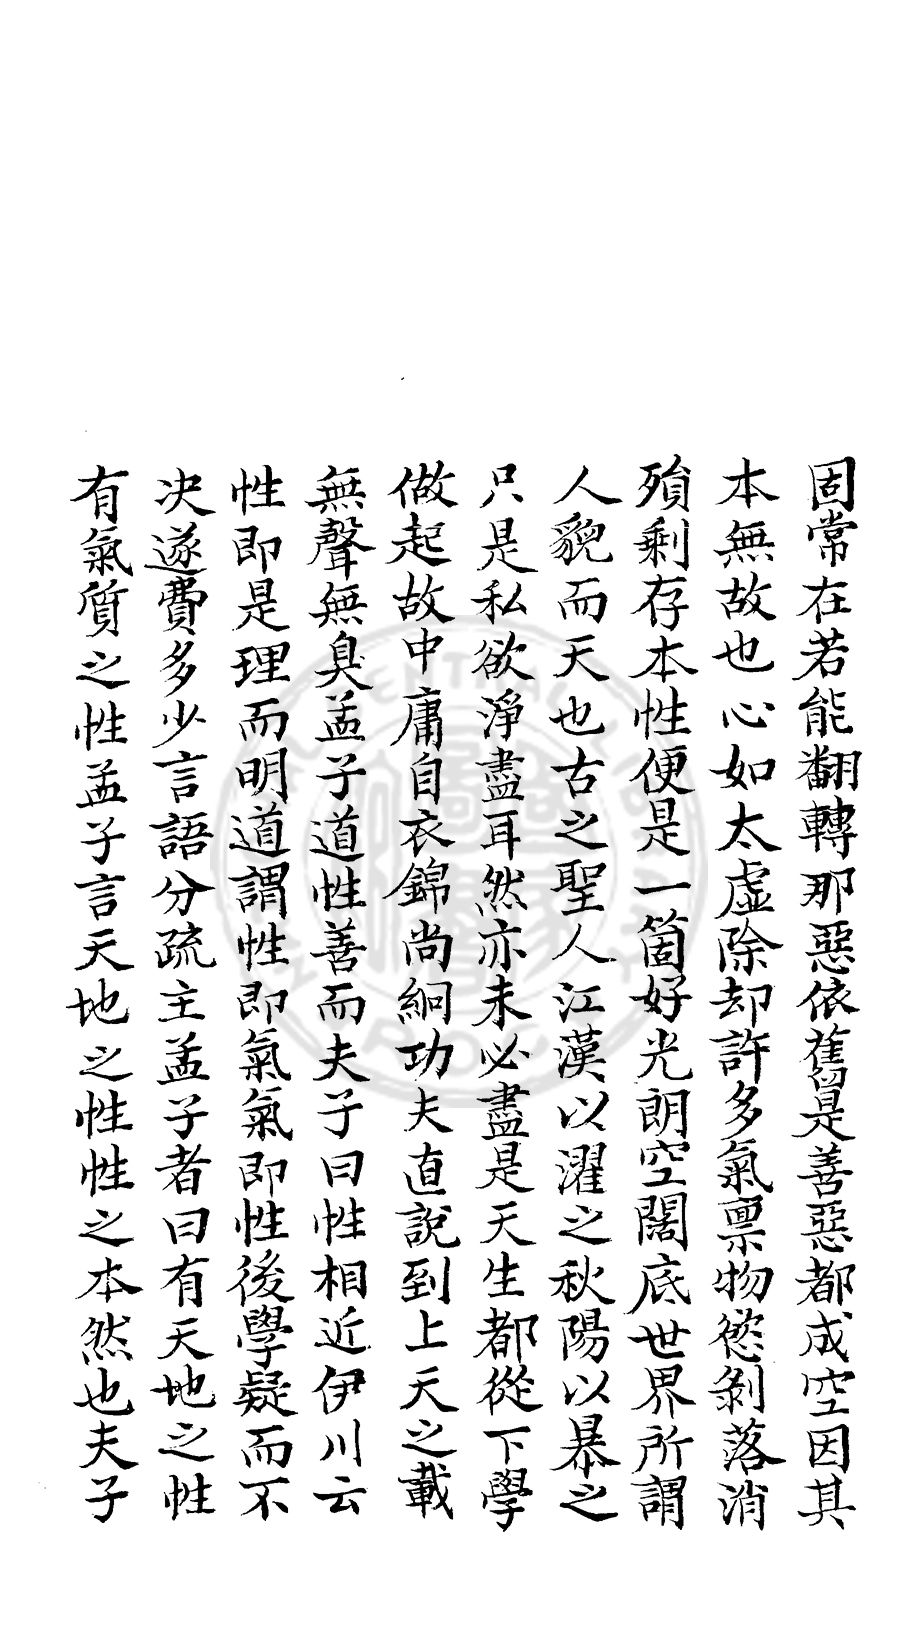 固常在若能翻轉那惡依舊是善惡都成空因其
本無故也心如太虛除却許多氣禀物慾剝落消
殞剩存本性便是一箇好光朗空闊底世界所謂
人貌而天也古之聖人江漢以濯之秋陽以暴之
只是私欲淨盡耳然亦未必盡是天生都從下學
做起故中庸自衣錦尚絅功夫直說到上天之載
無聲無臭孟子道性善而夫子曰性相近伊川云
性即是理而明道謂性即氣氣即性後學疑而不
决遂費多少言語分疏主孟子者曰有天地之性
有氣質之性孟子言天地之性性之本然也夫子